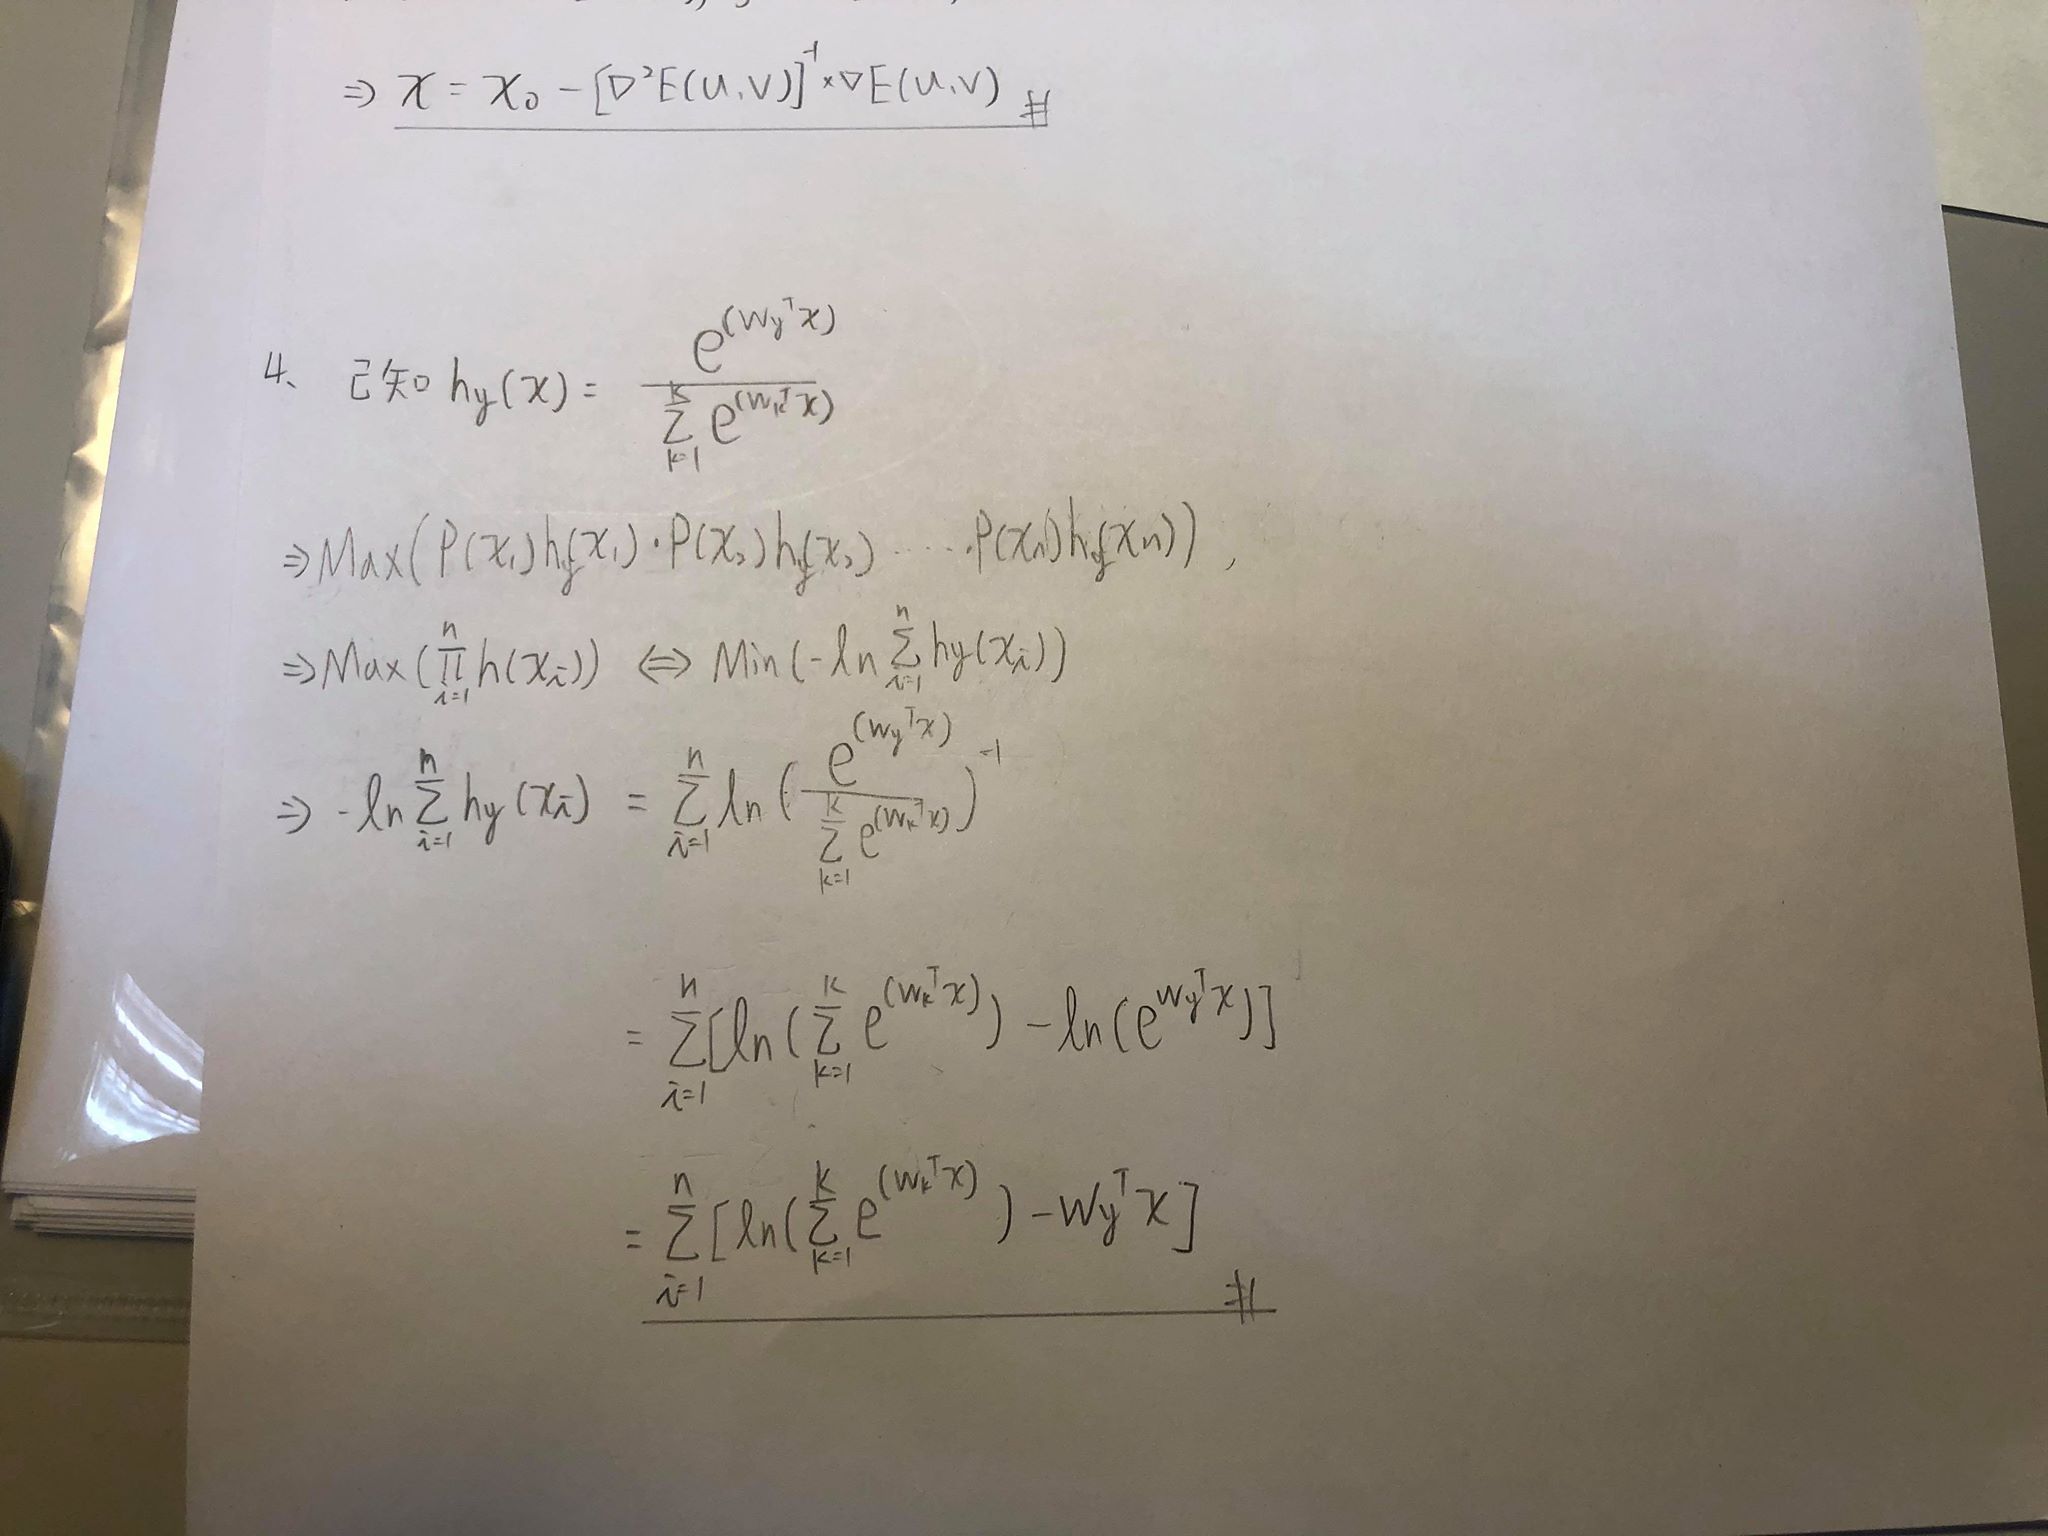 ⇒ x = x₀ − [∇²E(u,v)]⁻¹ × ∇E(u,v) #
4、 已知 h_y(x) = e^(W_y^T x) / Σ_{k=1}^{K} e^(W_k^T x)
⇒ Max(P(x₁)h_y(x₁)·P(x₂)h_y(x₂) ⋯⋯ ·P(xₙ)h_y(xₙ)),
⇒ Max(Π_{i=1}^{n} h(x_i)) ⇔ Min(-ln Σ_{i=1}^{n} h_y(x_i))
⇒ -ln Σ_{i=1}^{n} h_y(x_i) = Σ_{i=1}^{n} ln(e^(W_y^T x) / Σ_{k=1}^{K} e^(W_k^T x))^-1
= Σ_{i=1}^{n} [ln(Σ_{k=1}^{K} e^(W_k^T x)) − ln(e^{W_y^T x})]
= Σ_{i=1}^{n} [ln(Σ_{k=1}^{K} e^(W_k^T x)) − W_y^T x] #